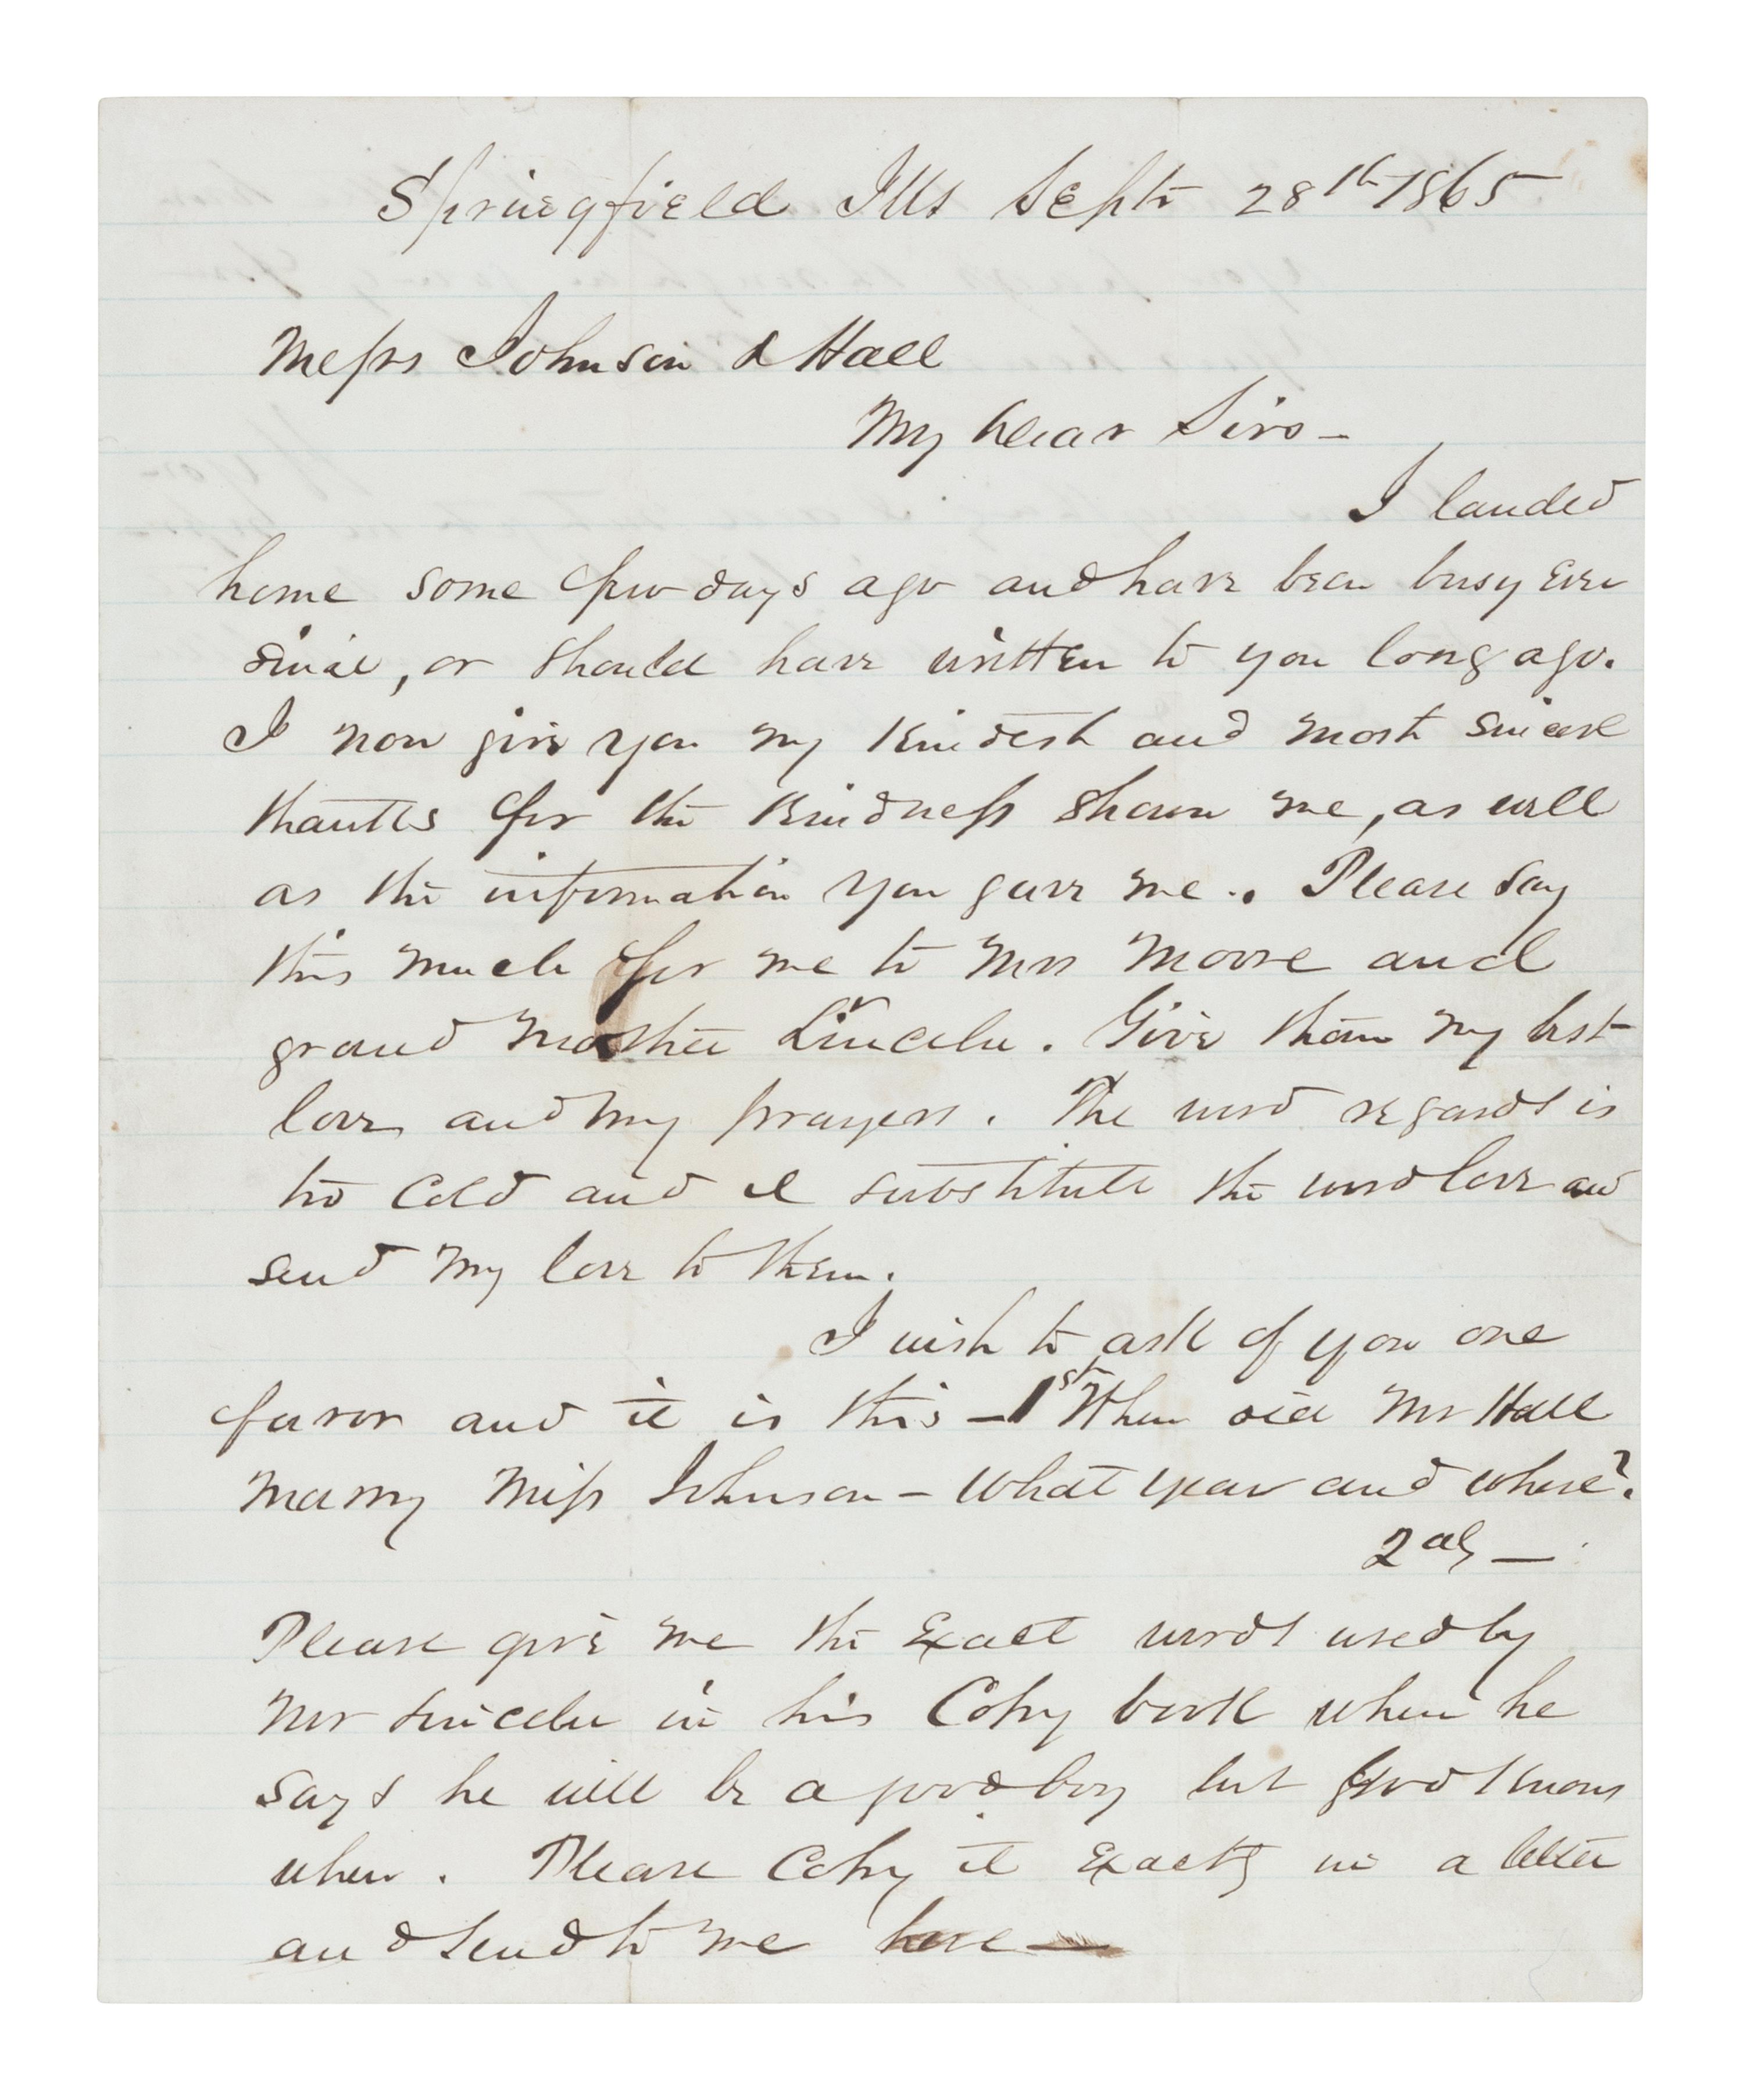 Springfield Ills Sept 28th 1865
Messrs Johnson & Hall
My Dear Sirs —
I landed
home some few days ago and have been busy ever
since, or should have written to you long ago.
I now give you my kindest and most sincere
thanks for the kindness shown me, as well
as the information you gave me. Please say
this much for me to Mrs Moore and
grand mother Lincoln. Give them my best
love and my prayers. The word regards is
too cold and I substitute the word love and
send my love to them.
I wish to ask of you one
favor and it is this — 1st When did Mr Hall
marry Miss Johnson — what year and where?
2dly —
Please give me the Exact words used by
Mr Lincoln in his Copy book when he
says he will be a good boy but god knows
when. Please Copy it Exactly in a letter
and send to me here —